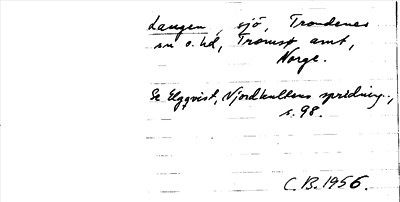 Langen, sjö, Trondenes
sn o. hd, Tromsø amt,
Norge.
Se Elgqvist, Njordkultens spridning,
s. 98.
C.B. 1956.